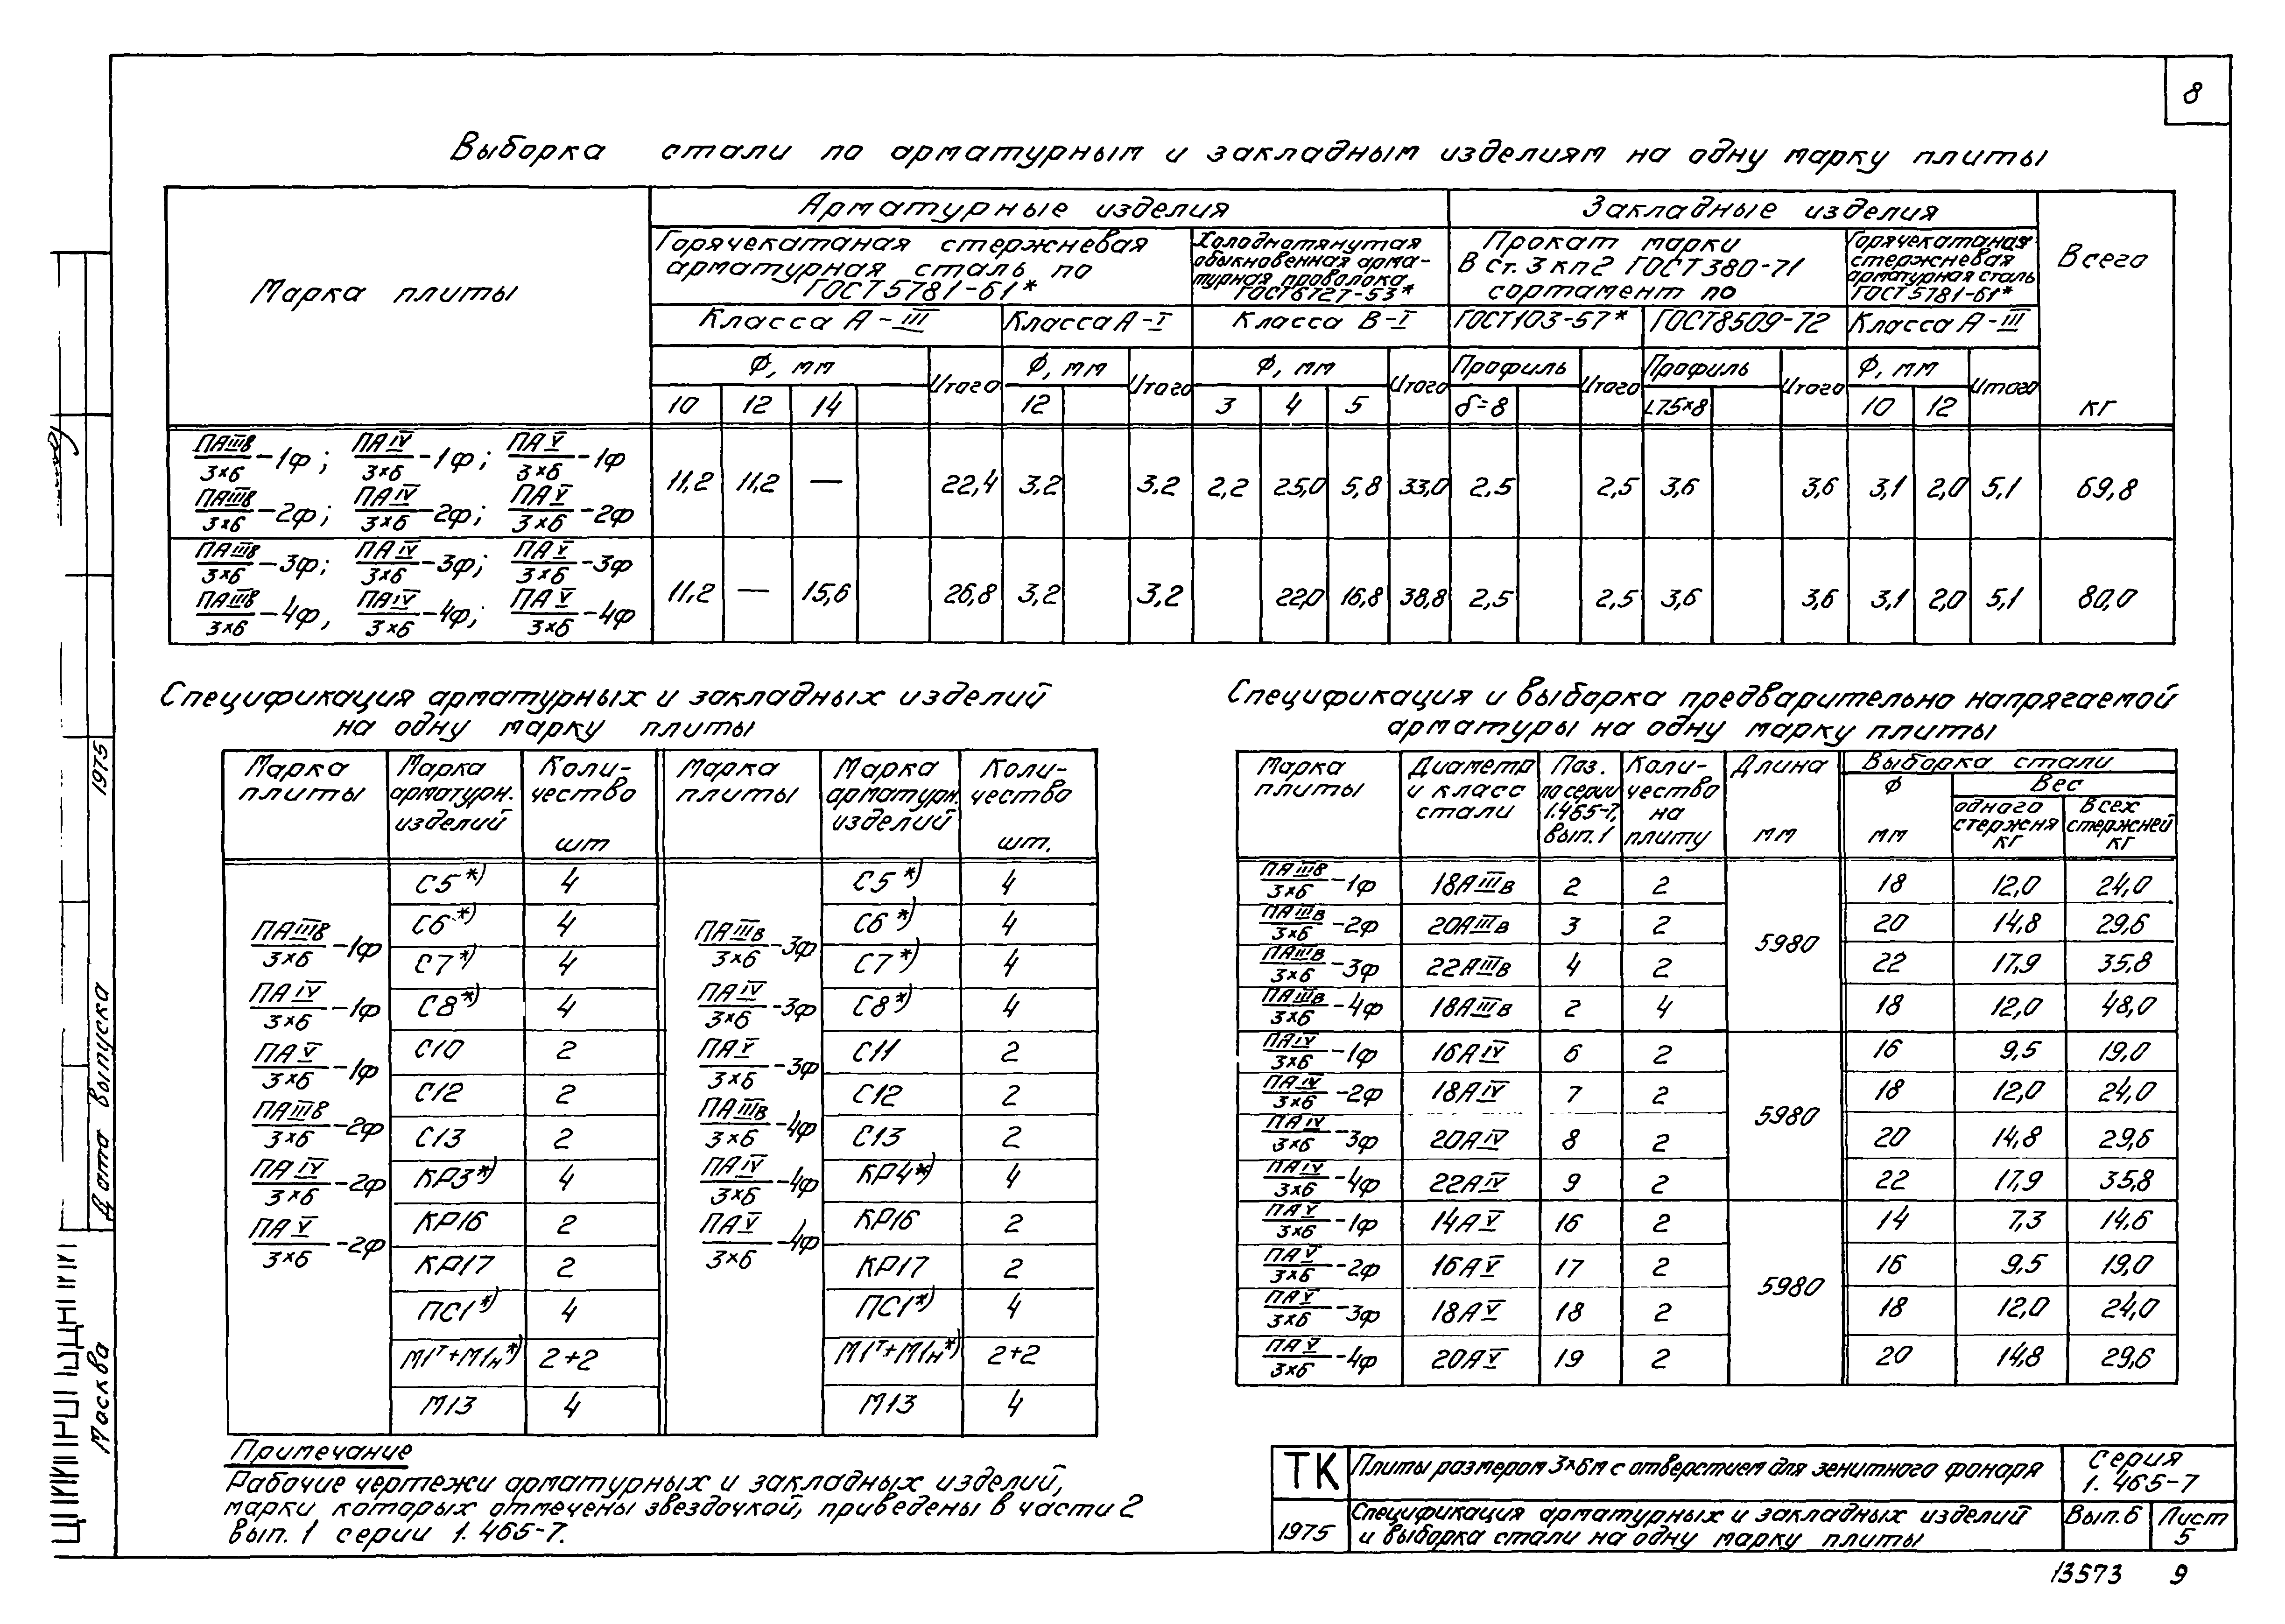 8
Выборка стали по арматурным и закладным изделиям на одну марку плиты
Марка плиты
Арматурные изделия
Закладные изделия
Всего
кг
Горячекатаная стержневая
арматурная сталь по
ГОСТ 5781-61*
Холоднотянутая
обыкновенная арма-
турная проволока
ГОСТ 6727-53*
Прокат марки
В ст. 3 кп2 ГОСТ 380-71
сортамент по
Горячекатаная
стержневая
арматурная сталь
ГОСТ 5781-61*
Класса А-III Класса А-I Класса В-I ГОСТ 103-57* ГОСТ 8509-72 Класса А-III
Ф, мм Итого Ф, мм Итого Ф, мм Итого Профиль Итого Профиль Итого Ф, мм Итого
10 12 14 12 3 4 5 δ=8 L75×8 10 12
ПАIIIв/3×6-1ф; ПАIV/3×6-1ф; ПАV/3×6-1ф
ПАIIIв/3×6-2ф; ПАIV/3×6-2ф; ПАV/3×6-2ф
11,2 11,2 — 22,4 3,2 3,2 2,2 25,0 5,8 33,0 2,5 2,5 3,6 3,6 3,1 2,0 5,1 69,8
ПАIIIв/3×6-3ф; ПАIV/3×6-3ф; ПАV/3×6-3ф
ПАIIIв/3×6-4ф, ПАIV/3×6-4ф; ПАV/3×6-4ф
11,2 — 15,6 26,8 3,2 3,2 22,0 16,8 38,8 2,5 2,5 3,6 3,6 3,1 2,0 5,1 80,0
Спецификация арматурных и закладных изделий
на одну марку плиты
Марка плиты Марка арматурн. изделий Коли-чество шт Марка плиты Марка арматурн. изделий Коли-чество шт.
ПАIIIв/3×6-1ф
ПАIV/3×6-1ф
ПАV/3×6-1ф
ПАIIIв/3×6-2ф
ПАIV/3×6-2ф
ПАV/3×6-2ф
С5*) 4
С6*) 4
С7*) 4
С8*) 4
С10 2
С12 2
С13 2
КР3*) 4
КР16 2
КР17 2
ПС1*) 4
М1т+М1н*) 2+2
М13 4
ПАIIIв/3×6-3ф
ПАIV/3×6-3ф
ПАV/3×6-3ф
ПАIIIв/3×6-4ф
ПАIV/3×6-4ф
ПАV/3×6-4ф
С5*) 4
С6*) 4
С7*) 4
С8*) 4
С11 2
С12 2
С13 2
КР4*) 4
КР16 2
КР17 2
ПС1*) 4
М1т+М1н*) 2+2
М13 4
Примечание
Рабочие чертежи арматурных и закладных изделий,
марки которых отмечены звездочкой, приведены в части 2
вып. 1 серии 1.465-7.
Спецификация и выборка предварительно напрягаемой
арматуры на одну марку плиты
Марка плиты Диаметр и класс стали Поз. по серии 1.465-7, вып. 1 Коли-чество на плиту Длина мм Выборка стали
Ф мм Вес
одного стержня кг Всех стержней кг
ПАIIIв/3×6-1ф 18АIIIв 2 2 18 12,0 24,0
ПАIIIв/3×6-2ф 20АIIIв 3 2 20 14,8 29,6
5980
ПАIIIв/3×6-3ф 22АIIIв 4 2 22 17,9 35,8
ПАIIIв/3×6-4ф 18АIIIв 2 4 18 12,0 48,0
ПАIV/3×6-1ф 16АIV 6 2 16 9,5 19,0
ПАIV/3×6-2ф 18АIV 7 2 18 12,0 24,0
5980
ПАIV/3×6-3ф 20АIV 8 2 20 14,8 29,6
ПАIV/3×6-4ф 22АIV 9 2 22 17,9 35,8
ПАV/3×6-1ф 14АV 16 2 14 7,3 14,6
ПАV/3×6-2ф 16АV 17 2 16 9,5 19,0
5980
ПАV/3×6-3ф 18АV 18 2 18 12,0 24,0
ПАV/3×6-4ф 20АV 19 2 20 14,8 29,6
ТК
1975
Плиты размером 3×6м с отверстием для зенитного фонаря
Серия
1.465-7
Спецификация арматурных и закладных изделий
и выборка стали на одну марку плиты
Вып. 6
Лист
5
13573 9
Москва
Дата выпуска 1975